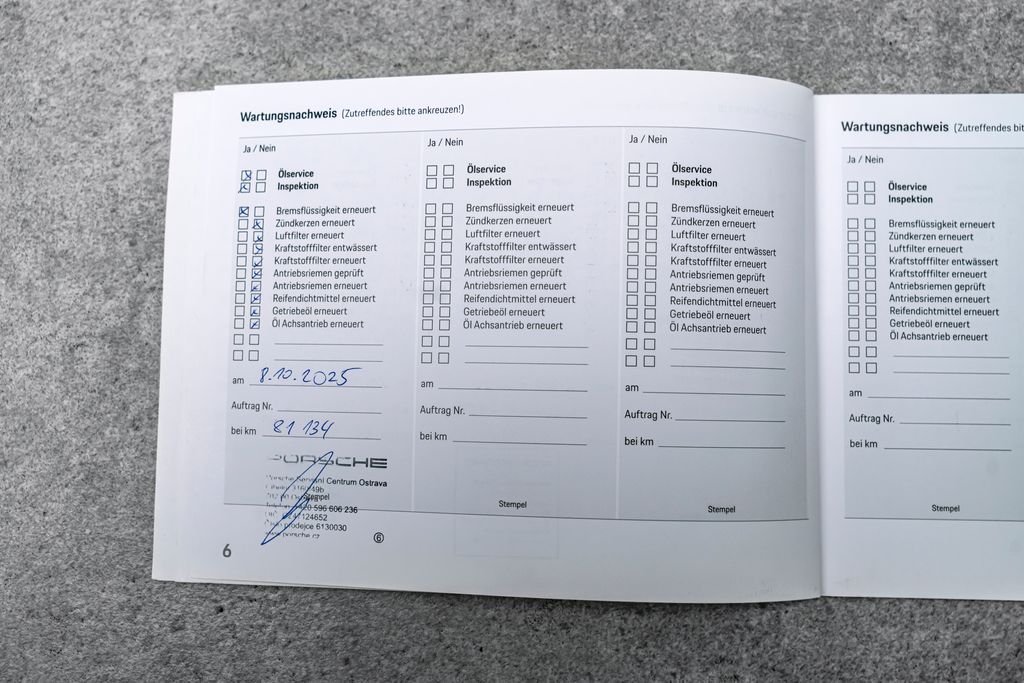 Wartungsnachweis (Zutreffendes bitte ankreuzen!)
Ja / Nein
Ölservice
Inspektion
Bremsflüssigkeit erneuert
Zündkerzen erneuert
Luftfilter erneuert
Kraftstofffilter entwässert
Kraftstofffilter erneuert
Antriebsriemen geprüft
Antriebsriemen erneuert
Reifendichtmittel erneuert
Getriebeöl erneuert
Öl Achsantrieb erneuert
am 8.10.2025
Auftrag Nr.
bei km 81 134
PORSCHE
Porsche Servisní Centrum Ostrava
Stempel
596 606 236
124652
prodejce 6130030
www.porsche.cz
6
6
Ja / Nein
Ölservice
Inspektion
Bremsflüssigkeit erneuert
Zündkerzen erneuert
Luftfilter erneuert
Kraftstofffilter entwässert
Kraftstofffilter erneuert
Antriebsriemen geprüft
Antriebsriemen erneuert
Reifendichtmittel erneuert
Getriebeöl erneuert
Öl Achsantrieb erneuert
am
Auftrag Nr.
bei km
Stempel
Ja / Nein
Ölservice
Inspektion
Bremsflüssigkeit erneuert
Zündkerzen erneuert
Luftfilter erneuert
Kraftstofffilter entwässert
Kraftstofffilter erneuert
Antriebsriemen geprüft
Antriebsriemen erneuert
Reifendichtmittel erneuert
Getriebeöl erneuert
Öl Achsantrieb erneuert
am
Auftrag Nr.
bei km
Stempel
Wartungsnachweis (Zutreffendes bi
Ja / Nein
Ölservice
Inspektion
Bremsflüssigkeit erneuert
Zündkerzen erneuert
Luftfilter erneuert
Kraftstofffilter entwässert
Kraftstofffilter erneuert
Antriebsriemen geprüft
Antriebsriemen erneuert
Reifendichtmittel erneuert
Getriebeöl erneuert
Öl Achsantrieb erneuert
am
Auftrag Nr.
bei km
Stempel